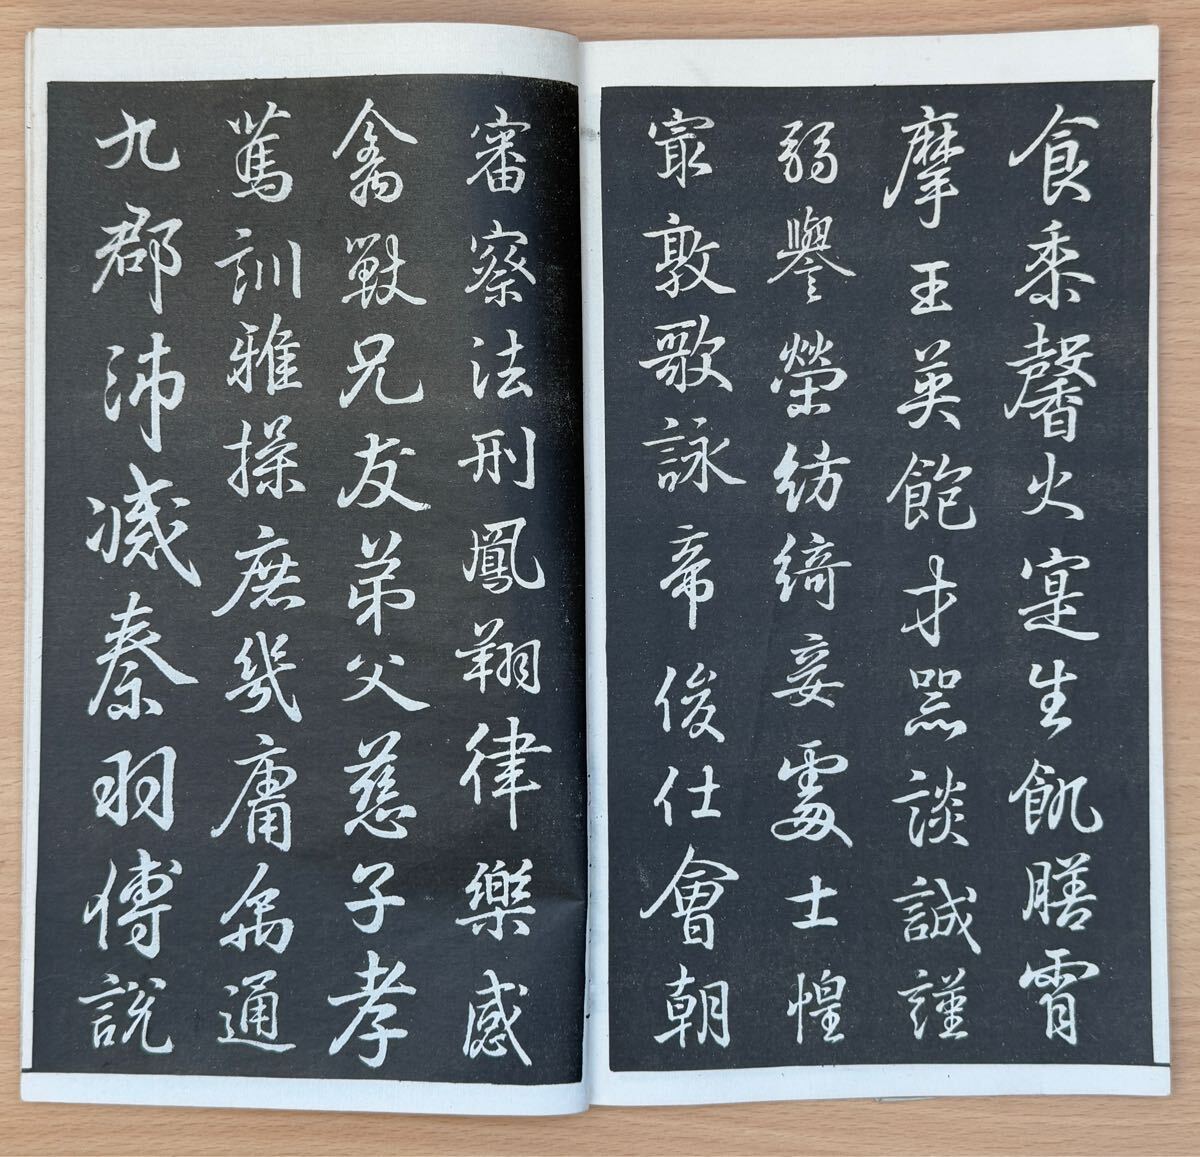 食黍馨火寔生飢膳霄
摩王英飽才器談誠謹
弱譽榮紡綺妾處士惶
寂敦歌詠帝俊仕會朝
審察法刑鳳翔律樂感
禽獸兄友弟父慈子孝
篤訓雅操庶幾庸爲通
九郡沛滅秦羽傅説